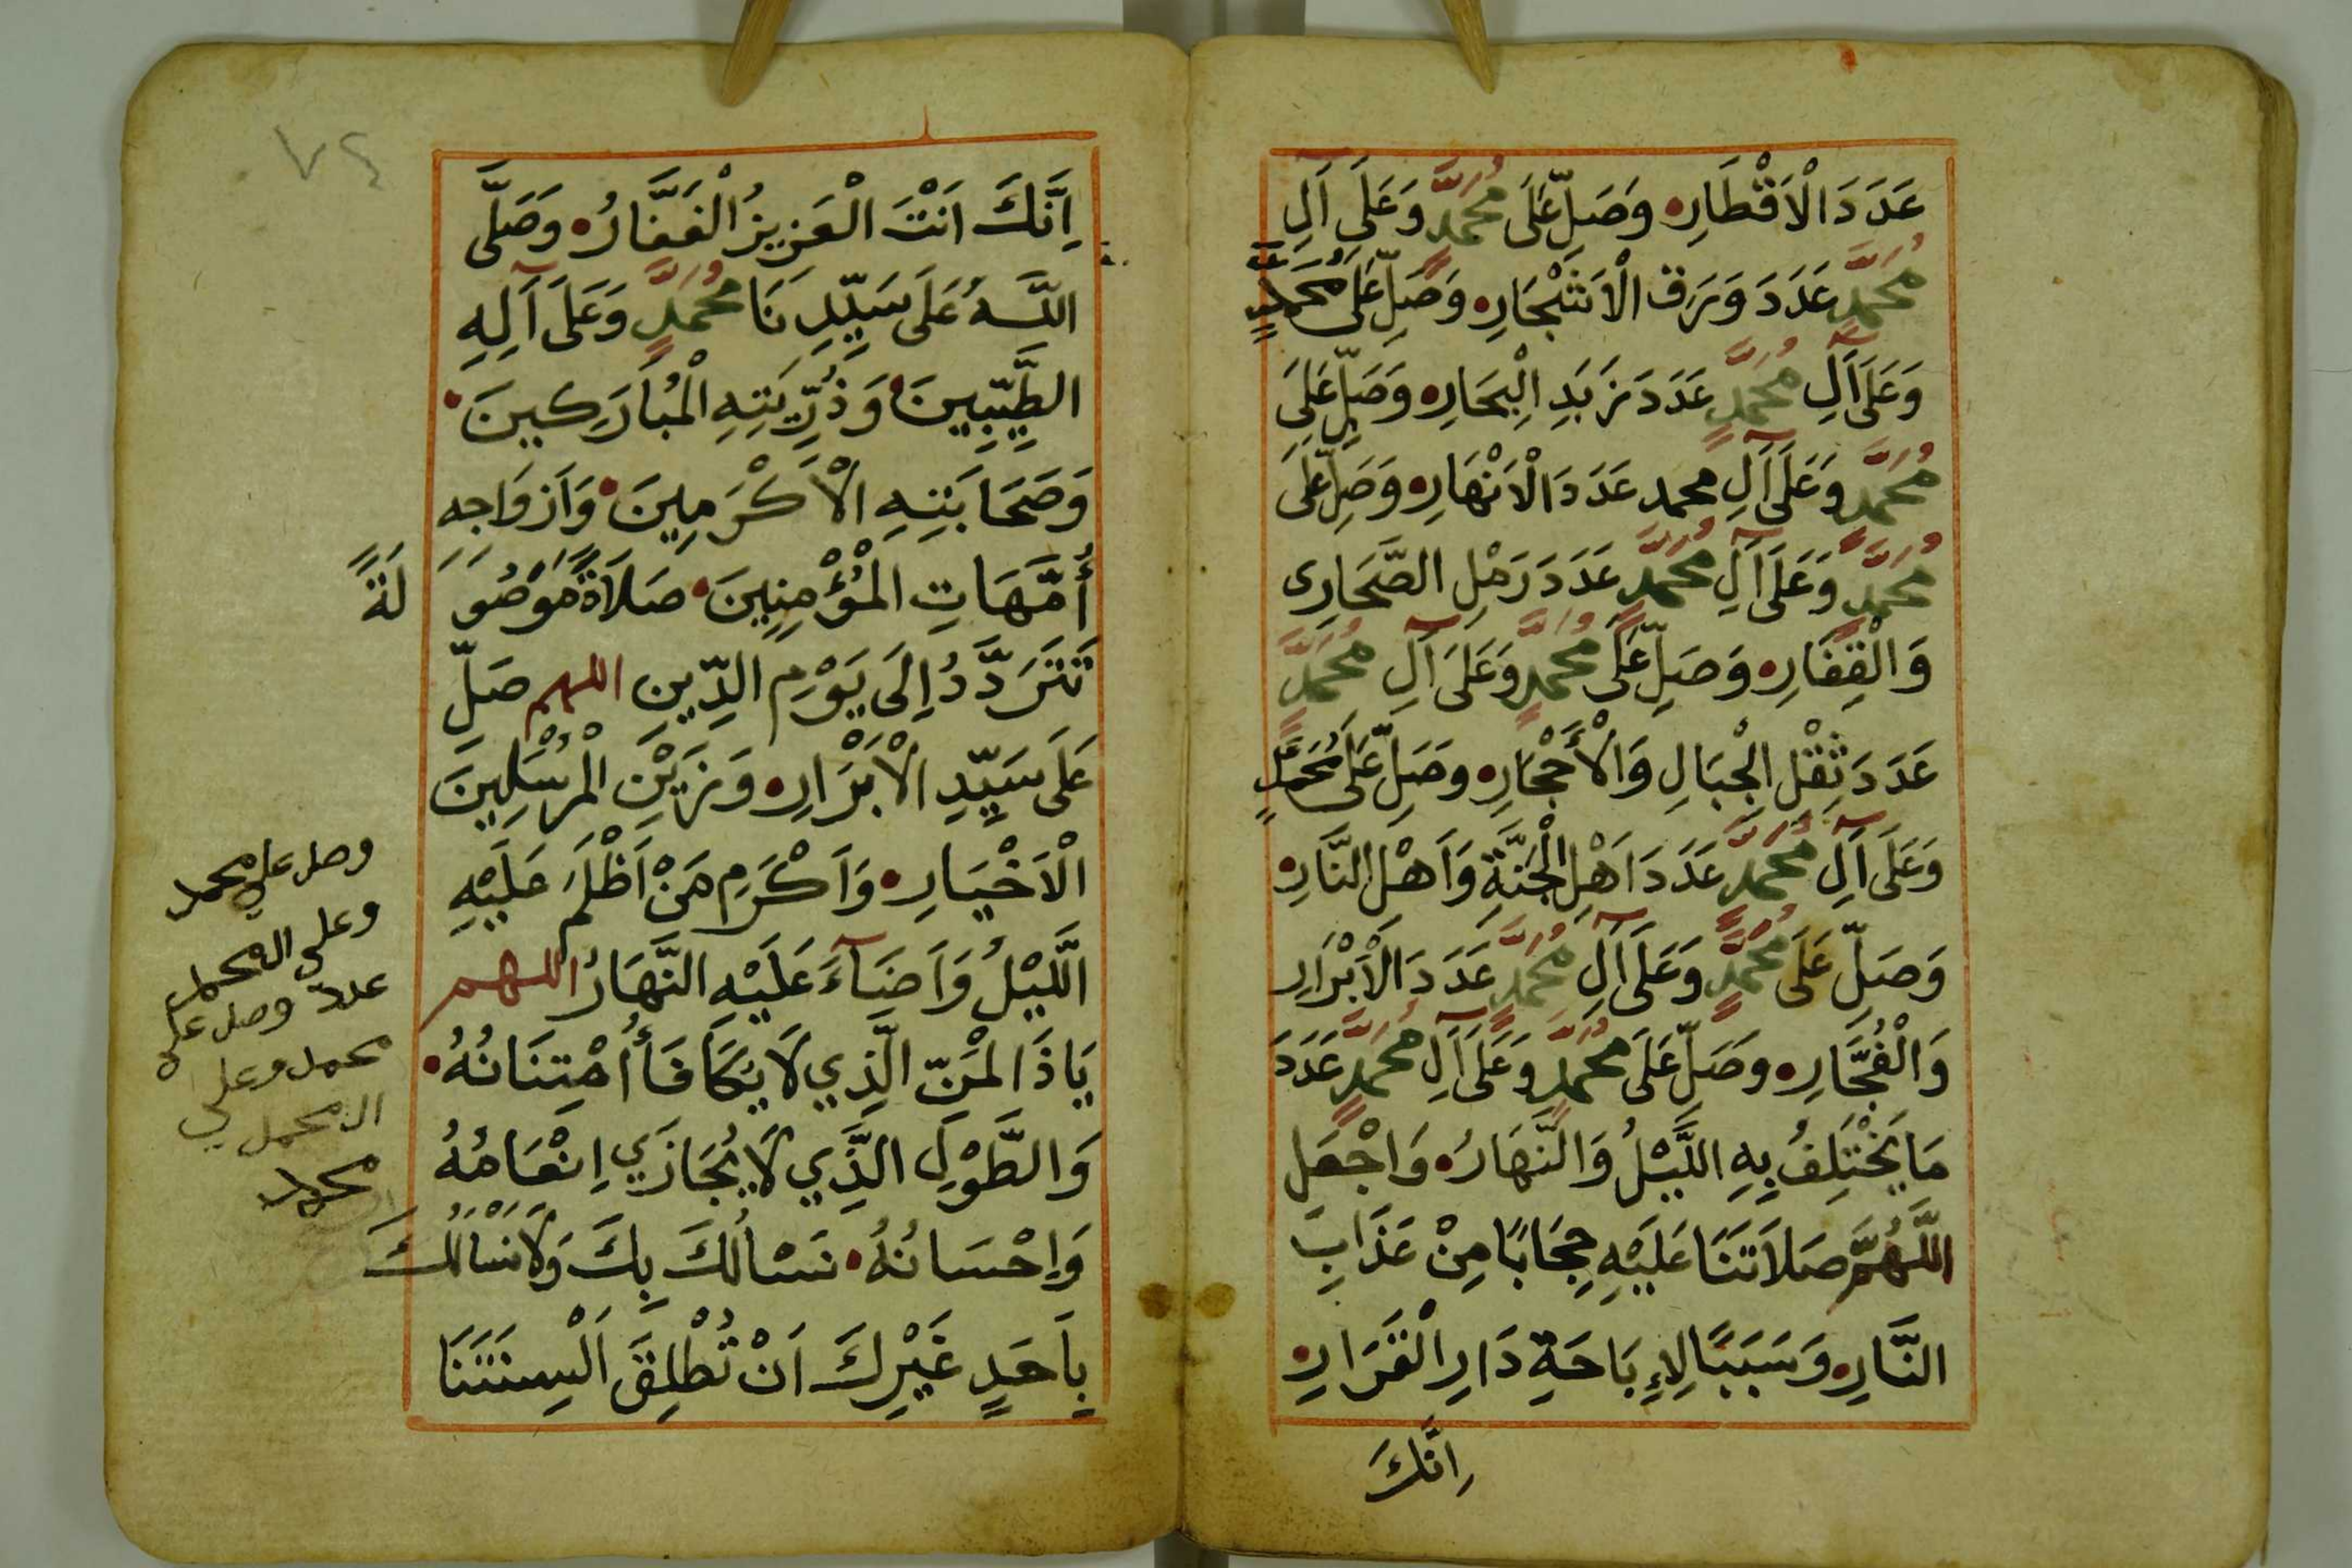 عَدَدَ الْاَقْطَارِ وَصَلِّ عَلَى مُحَمَّدٍ وَعَلَى آلِ
مُحَمَّدٍ عَدَدَ وَرَقِ الْاَشْجَارِ وَصَلِّ عَلَى مُحَمَّدٍ
وَعَلَى آلِ مُحَمَّدٍ عَدَدَ زَبَدِ الْبِحَارِ وَصَلِّ عَلَى
مُحَمَّدٍ وَعَلَى آلِ محمد عَدَدَ الْاَنْهَارِ وَصَلِّ عَلَى
مُحَمَّدٍ وَعَلَى آلِ مُحَمَّدٍ عَدَدَ رَمْلِ الصَّحَارِى
وَالْقِفَارِ وَصَلِّ عَلَى مُحَمَّدٍ وَعَلَى آلِ مُحَمَّدٍ
عَدَدَ ثِقْلِ الْجِبَالِ وَالْأَحْجَارِ وَصَلِّ عَلَى مُحَمَّدٍ
وَعَلَى آلِ مُحَمَّدٍ عَدَدَ اَهْلِ الْجَنَّةِ وَاَهْلِ النَّارِ
وَصَلِّ عَلَى مُحَمَّدٍ وَعَلَى آلِ مُحَمَّدٍ عَدَدَ الْاَبْرَارِ
وَالْفُجَّارِ وَصَلِّ عَلَى مُحَمَّدٍ وَعَلَى آلِ مُحَمَّدٍ عَدَدَ
مَا يَخْتَلِفُ بِهِ اللَّيْلُ وَالنَّهَارُ وَاجْعَلِ
اللَّهُمَّ صَلَاتَنَا عَلَيْهِ حِجَابًا مِنْ عَذَابِ
النَّارِ وَسَبَبًا لِاِبَاحَةِ دَارِ الْقَرَارِ
اِنَّكَ
٧٤
اِنَّكَ اَنْتَ الْعَزِيزُ الْغَفَّارُ وَصَلَّى
اللَّهُ عَلَى سَيِّدِنَا مُحَمَّدٍ وَعَلَى آلِهِ
الطَّيِّبِينَ وَذُرِّيَتِهِ الْمُبَارَكِينَ
وَصَحَابَتِهِ الْاَكْرَمِينَ وَاَزْوَاجِهِ
أُمَّهَاتِ الْمُؤْمِنِينَ صَلَاةً مَوْصُولَةً
تَتَرَدَّدُ اِلَى يَوْمِ الدِّينِ اللهم صَلِّ
عَلَى سَيِّدِ الْاَبْرَارِ وَزَيْنِ الْمُرْسَلِينَ
الْاَخْيَارِ وَاَكْرَمِ مَنْ اَظْلَمَ عَلَيْهِ
اللَّيْلُ وَاَضَآءَ عَلَيْهِ النَّهَارُ اللهم
يَاذَا الْمَنِّ الَّذِي لَا يُكَافَأُ اُمْتِنَانُهُ
وَالطَّوْلِ الَّذِي لَا يُجَازَي اِنْعَامُهُ
وَاِحْسَانُهُ نَسْاَلُكَ بِكَ وَلَا نَسْاَلُكَ
بِاَحَدٍ غَيْرِكَ اَنْ تُطْلِقَ اَلْسِنَتَنَا
وصل على محمد
وعلى ال محمد
عدد وصل على
محمد وعلى
ال محمد
محمد